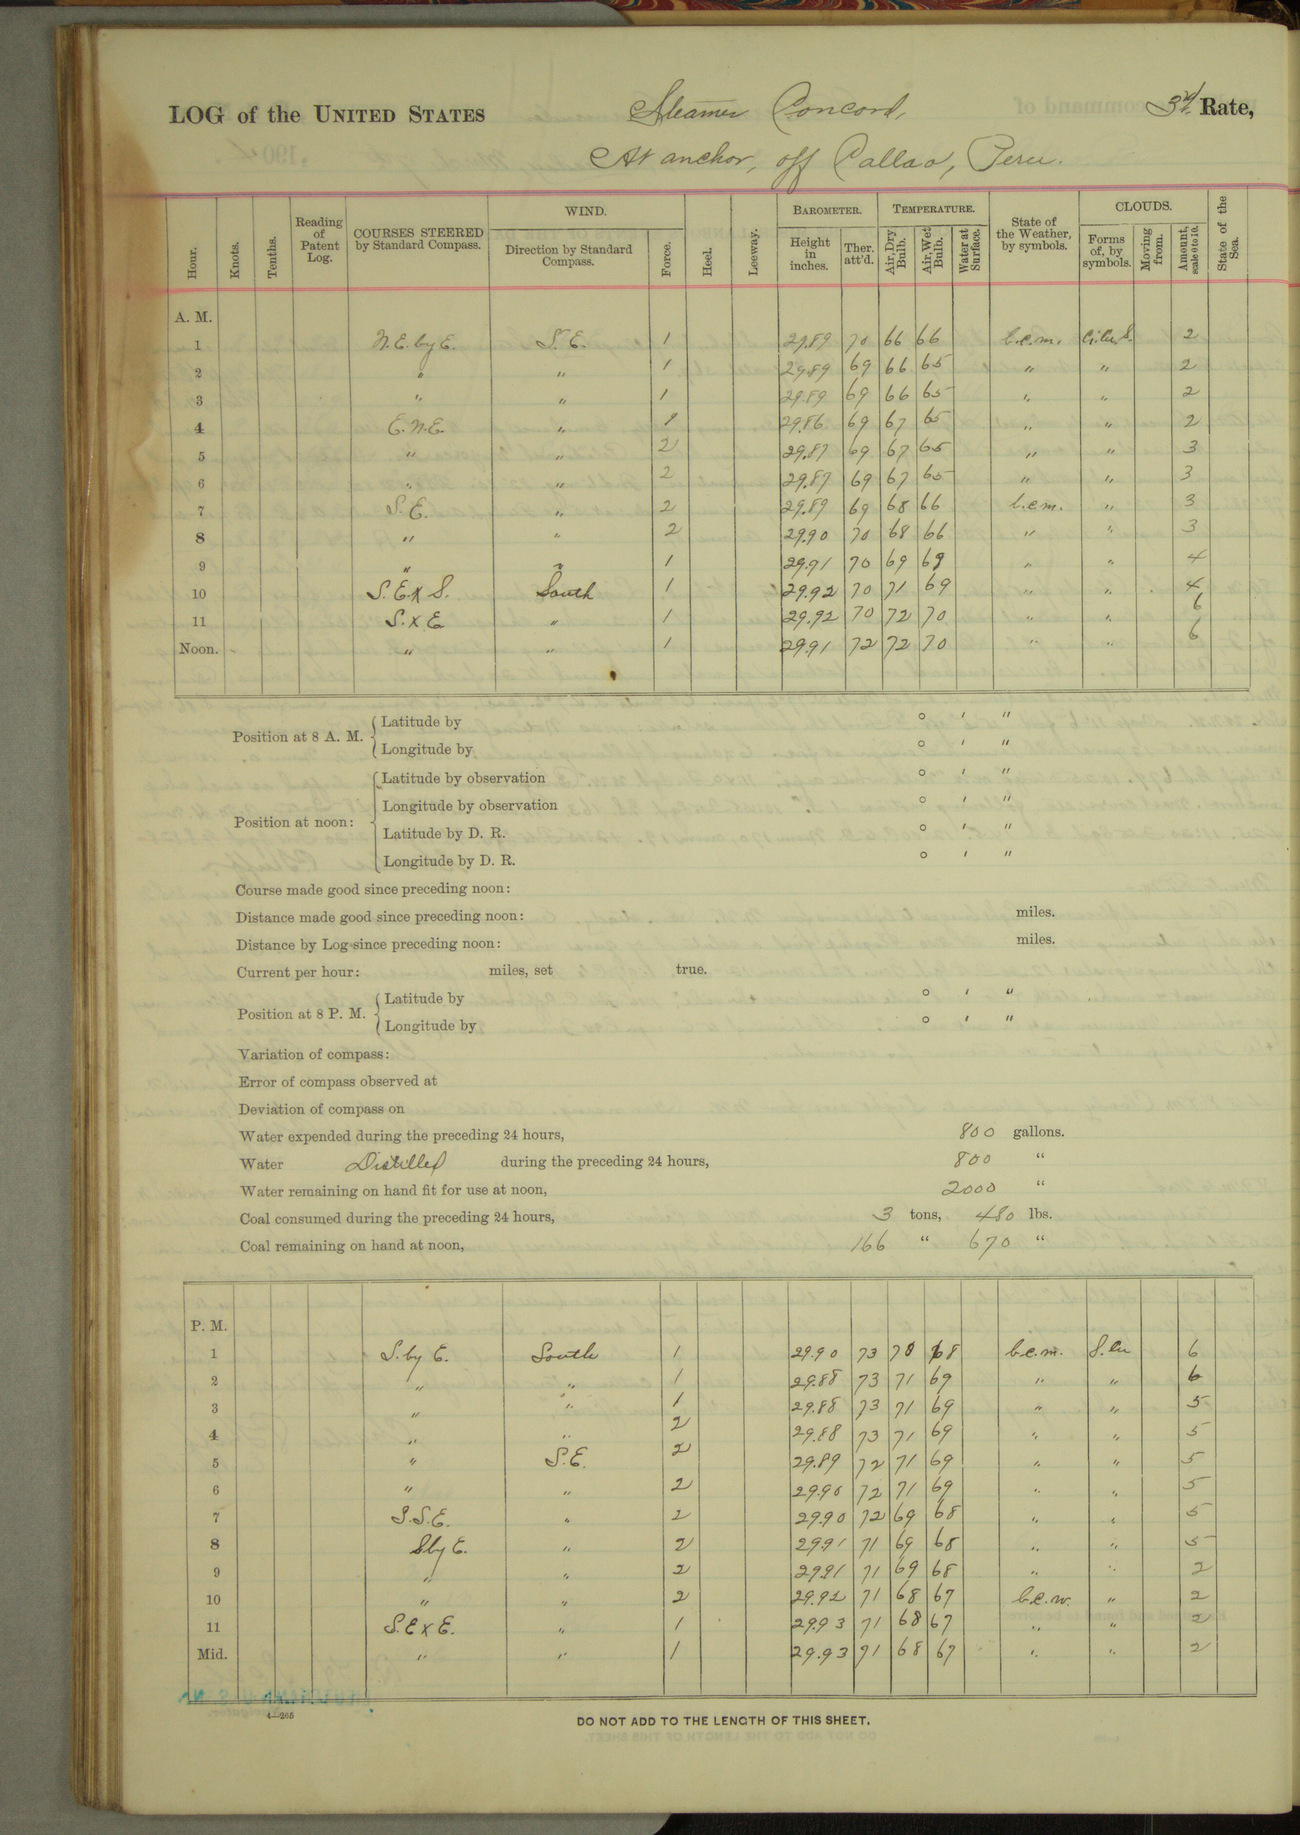 LOG of the UNITED STATES Steamer Concord, 3rd Rate,
At anchor, off Callao, Peru.
Hour. Knots. Tenths. Reading of Patent Log. COURSES STEERED by Standard Compass. WIND. Direction by Standard Compass. Force. Heel. Leeway. BAROMETER. Height in inches. Ther. att'd. TEMPERATURE. Air, Dry Bulb. Air, Wet Bulb. Water at Surface. State of the Weather, by symbols. CLOUDS. Forms of, by symbols. Moving from. Amount, scale 0 to 10. State of the Sea.
A. M.
1 N.E. by E. S.E. 1 29.89 70 66 66 b.c.m. Ci.Cu.S. 2
2 " " 1 29.89 69 66 65 " " 2
3 " " 1 29.89 69 66 65 " " 2
4 E.N.E. " 1 29.86 69 67 65 " " 2
5 " " 2 29.87 69 67 65 " " 3
6 " " 2 29.87 69 67 65 " " 3
7 S.E. " 2 29.89 69 68 66 b.c.m. " 3
8 " " 2 29.90 70 68 66 " " 3
9 " " 1 29.91 70 69 69 " " 4
10 S.E. x S. South 1 29.92 70 71 69 " " 4
11 S. x E " 1 29.92 70 72 70 " " 6
Noon. " " 1 29.91 72 72 70 " " 6
Position at 8 A. M. { Latitude by ° ' "
Longitude by ° ' "
Position at noon: { Latitude by observation ° ' "
Longitude by observation ° ' "
Latitude by D. R. ° ' "
Longitude by D. R. ° ' "
Course made good since preceding noon:
Distance made good since preceding noon: miles.
Distance by Log since preceding noon: miles.
Current per hour: miles, set true.
Position at 8 P. M. { Latitude by ° ' "
Longitude by ° ' "
Variation of compass:
Error of compass observed at
Deviation of compass on
Water expended during the preceding 24 hours, 800 gallons.
Water Distilled during the preceding 24 hours, 800 "
Water remaining on hand fit for use at noon, 2000 "
Coal consumed during the preceding 24 hours, 3 tons, 480 lbs.
Coal remaining on hand at noon, 166 " 670 "
P. M.
1 S. by E. South 1 29.90 73 70 68 b.c.m. S.Cu 6
2 " " 1 29.88 73 71 69 " " 6
3 " " 1 29.88 73 71 69 " " 5
4 " " 2 29.88 73 71 69 " " 5
5 " S.E. 2 29.89 72 71 69 " " 5
6 " " 2 29.90 72 71 69 " " 5
7 S.S.E. " 2 29.90 72 69 68 " " 5
8 S by E. " 2 29.91 71 69 68 " " 5
9 " " 2 29.91 71 69 68 " " 2
10 " " 2 29.92 71 68 67 b.c.w. " 2
11 S.E x E. " 1 29.93 71 68 67 " " 2
Mid. " " 1 29.93 71 68 67 " " 2
4—265
DO NOT ADD TO THE LENGTH OF THIS SHEET.